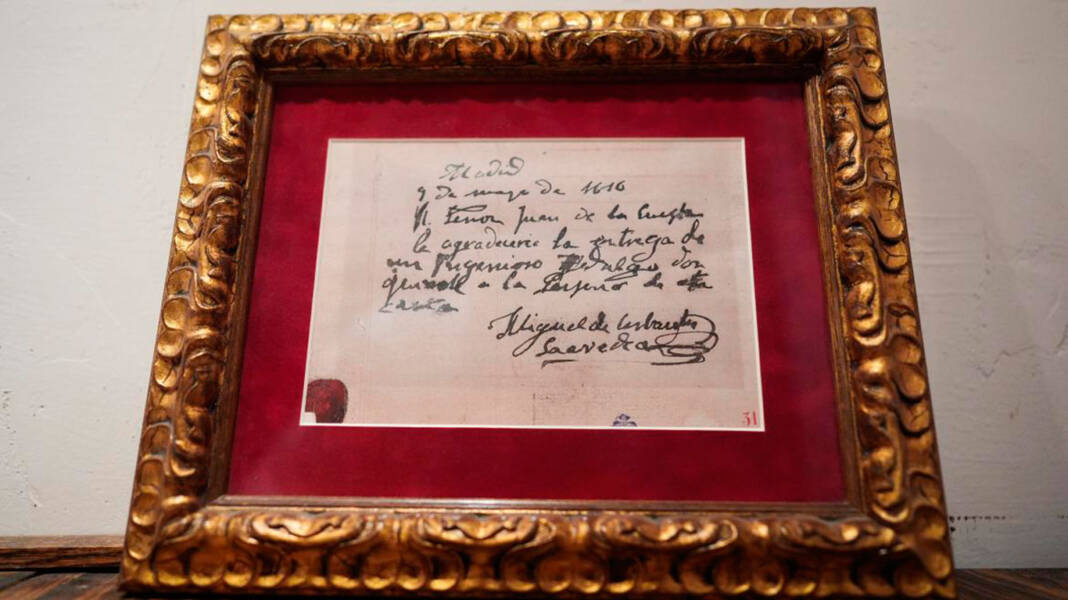 Madrid
9 de mayo de 1610
Señor Juan de la Cuesta
le agradecere la entrega de
un Ingenioso Hidalgo don
quixote a la de esta
carta
Miguel de Cerbantes
Saavedra
31